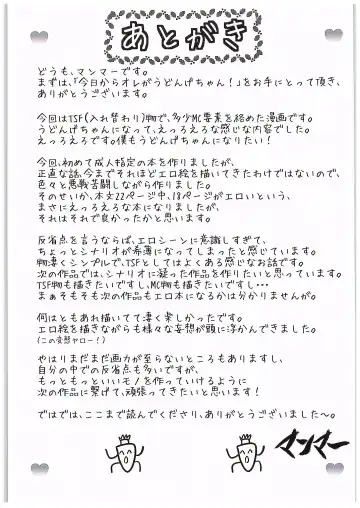 あとがき
どうも、マンマーです。
まずは、「今日からオレがうどんげちゃん！」をお手にとって頂き、
ありがとうございます。
今回はTSF(入れ替わり)物で、多少MC要素を絡めた漫画です。
うどんげちゃんになって、えっろえろな感じな内容でした。
えっろえろです。僕もうどんげちゃんになりたい！
今回、初めて成人指定の本を作りましたが、
正直な話、今までそれほどエロ絵を描いてきたわけではないので、
色々と悪戦苦闘しながら作りました。
そのせいか、本文22ページ中、18ページがエロいという、
まさにえっろえろな本になりましたが、
それはそれで良かったかと思います。
反省点を言うならば、エロシーンに意識しすぎて、
ちょっとシナリオが希薄になってしまったと感じています。
物凄くシンプルで、TSFとしてはよくある感じなお話です。
次の作品では、シナリオに凝った作品を作りたいと思っています。
TSF物も描きたいですし、MC物も描きたいですし・・・
まぁそもそも次の作品もエロ本になるかは分かりませんが。
何はともあれ描いてて凄く楽しかったです。
エロ絵を描きながらも様々な妄想が頭に浮かんできました。
(この変態ヤロー！)
やはりまだまだ画力が至らないところもありますし、
自分の中での反省点も多いですが、
もっともっといいモノを作っていけるように
次の作品に繋げて、頑張ってきたいと思います！
ではでは、ここまで読んでくださり、ありがとうございました〜。
マンマー